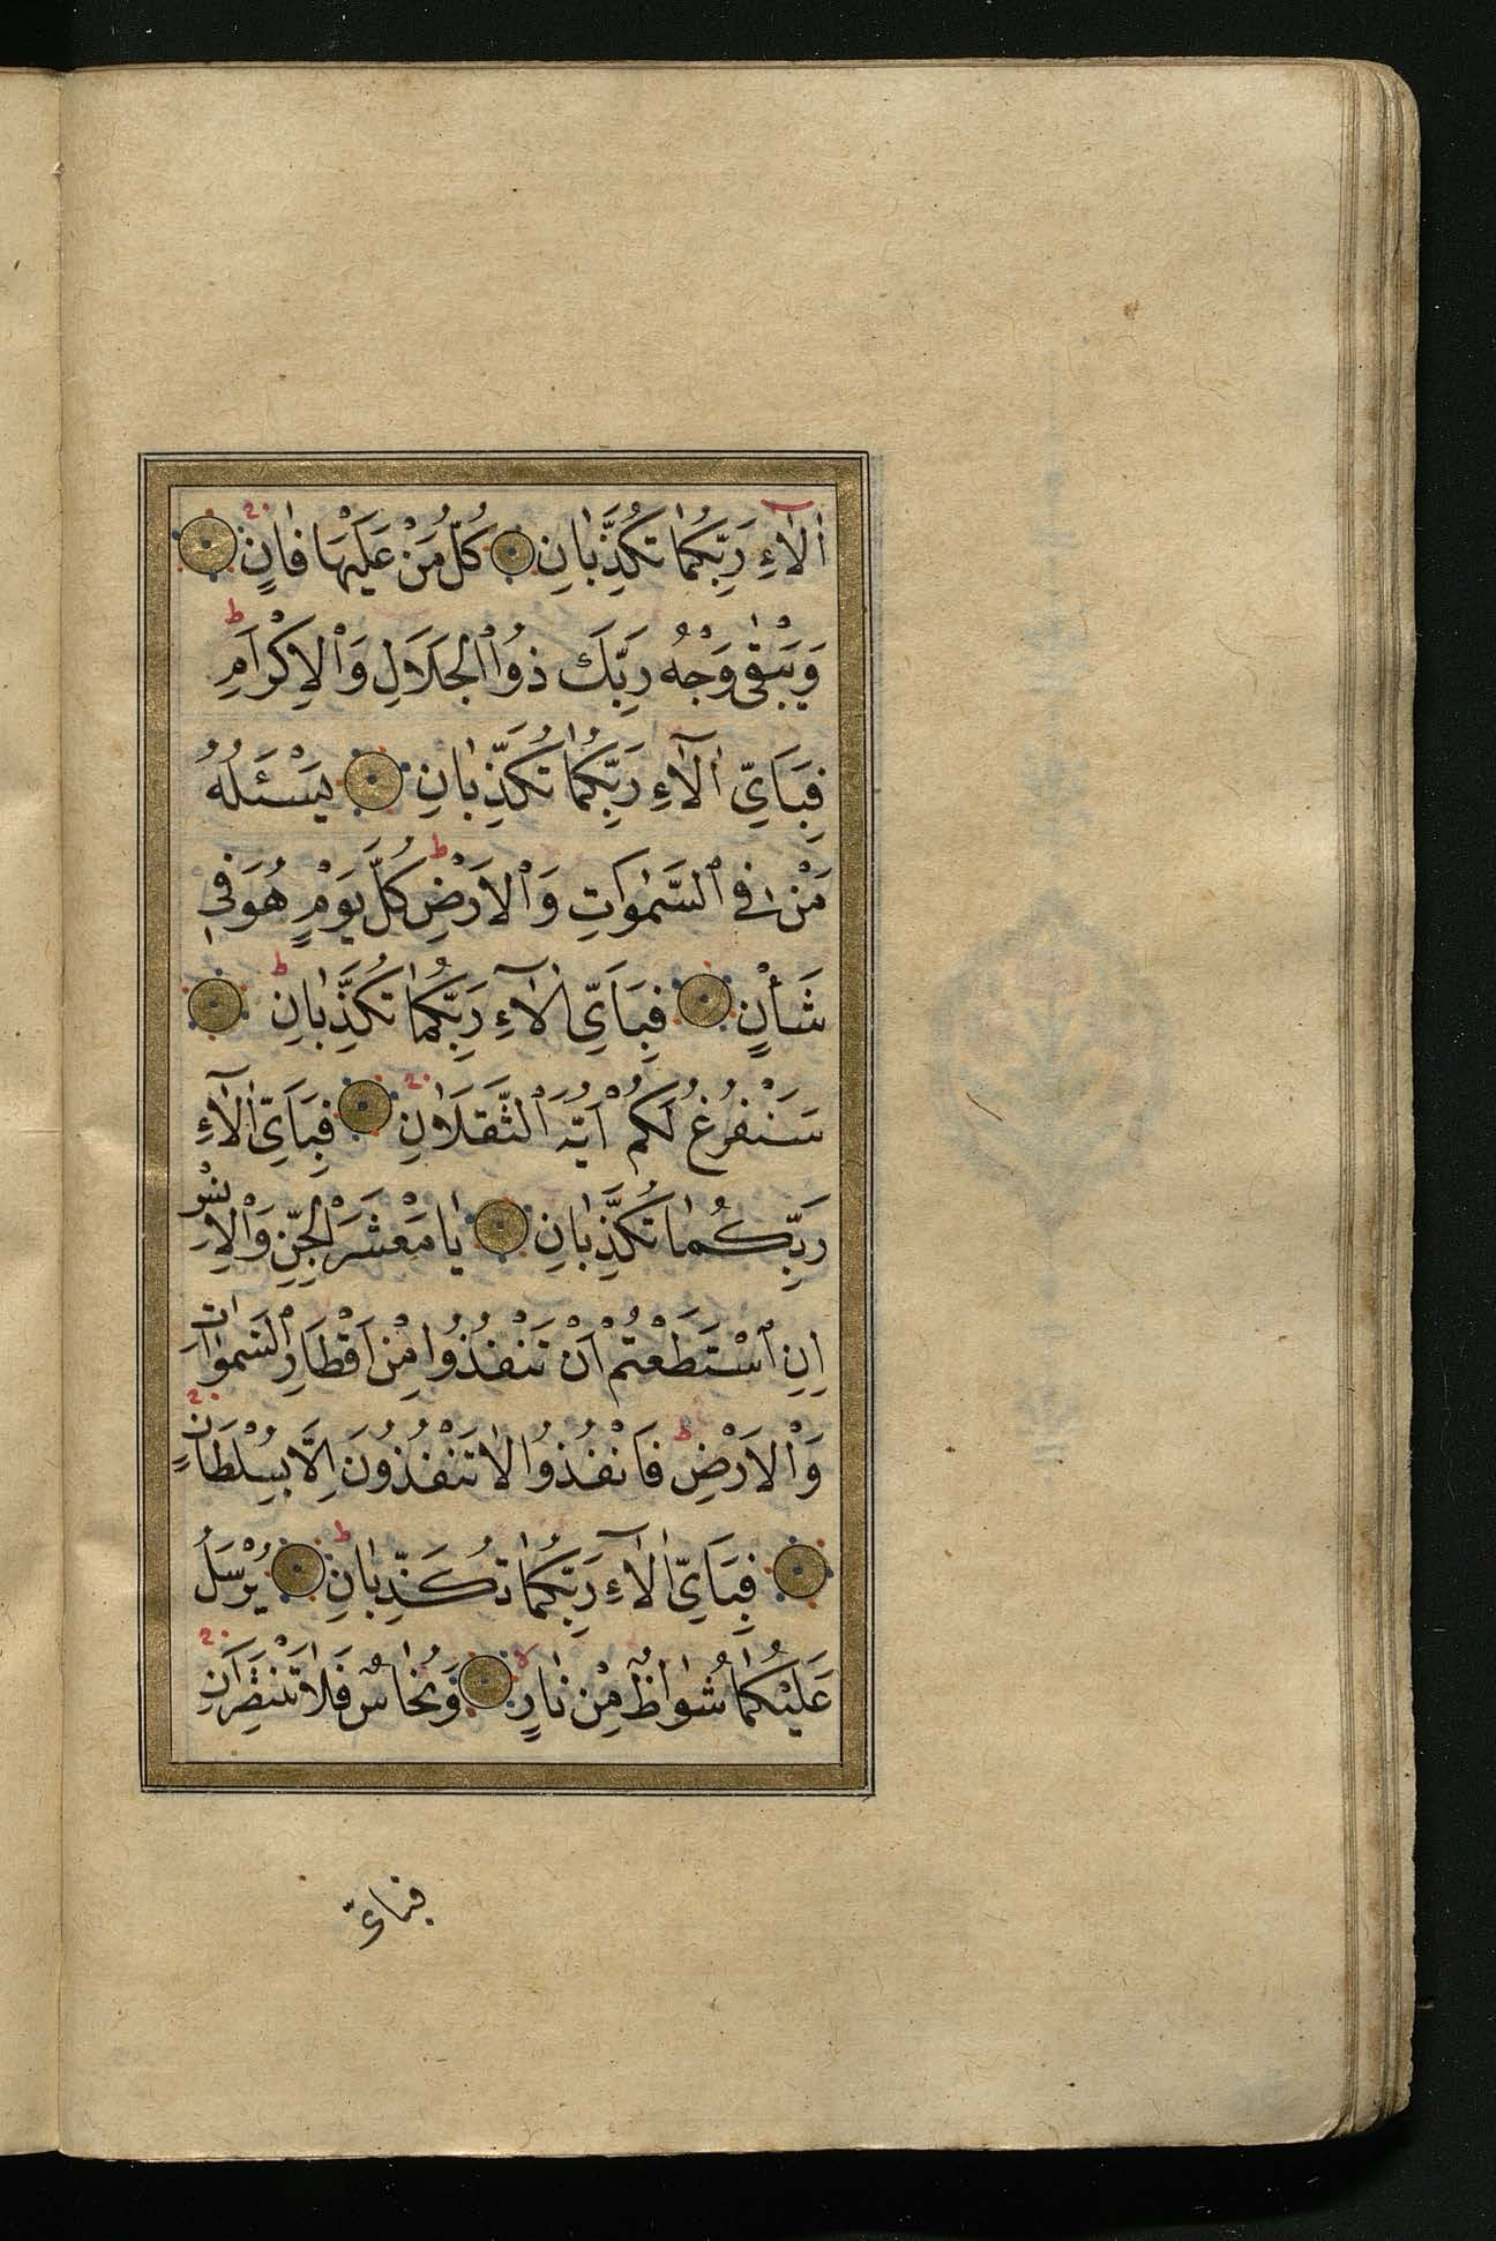 اٰلَاءِ رَبِّكُمَا تُكَذِّبَانِ كُلُّ مَنْ عَلَيْهَا فَانٍ
وَيَبْقٰى وَجْهُ رَبِّكَ ذُو الْجَلَالِ وَالْاِكْرَامِ
فَبِاَيِّ اٰلَاءِ رَبِّكُمَا تُكَذِّبَانِ يَسْـَٔلُهُ
مَنْ فِي السَّمٰوَاتِ وَالْاَرْضِ كُلَّ يَوْمٍ هُوَ فِي
شَأْنٍ فَبِاَيِّ اٰلَاءِ رَبِّكُمَا تُكَذِّبَانِ
سَنَفْرُغُ لَكُمْ اَيُّهَ الثَّقَلَانِ فَبِاَيِّ اٰلَاءِ
رَبِّكُمَا تُكَذِّبَانِ يَا مَعْشَرَ الْجِنِّ وَالْاِنْسِ
اِنِ اسْتَطَعْتُمْ اَنْ تَنْفُذُوا مِنْ اَقْطَارِ السَّمٰوَاتِ
وَالْاَرْضِ فَانْفُذُوا لَا تَنْفُذُونَ اِلَّا بِسُلْطَانٍ
فَبِاَيِّ اٰلَاءِ رَبِّكُمَا تُكَذِّبَانِ يُرْسَلُ
عَلَيْكُمَا شُوَاظٌ مِنْ نَارٍ وَنُحَاسٌ فَلَا تَنْتَصِرَانِ
فبايّ